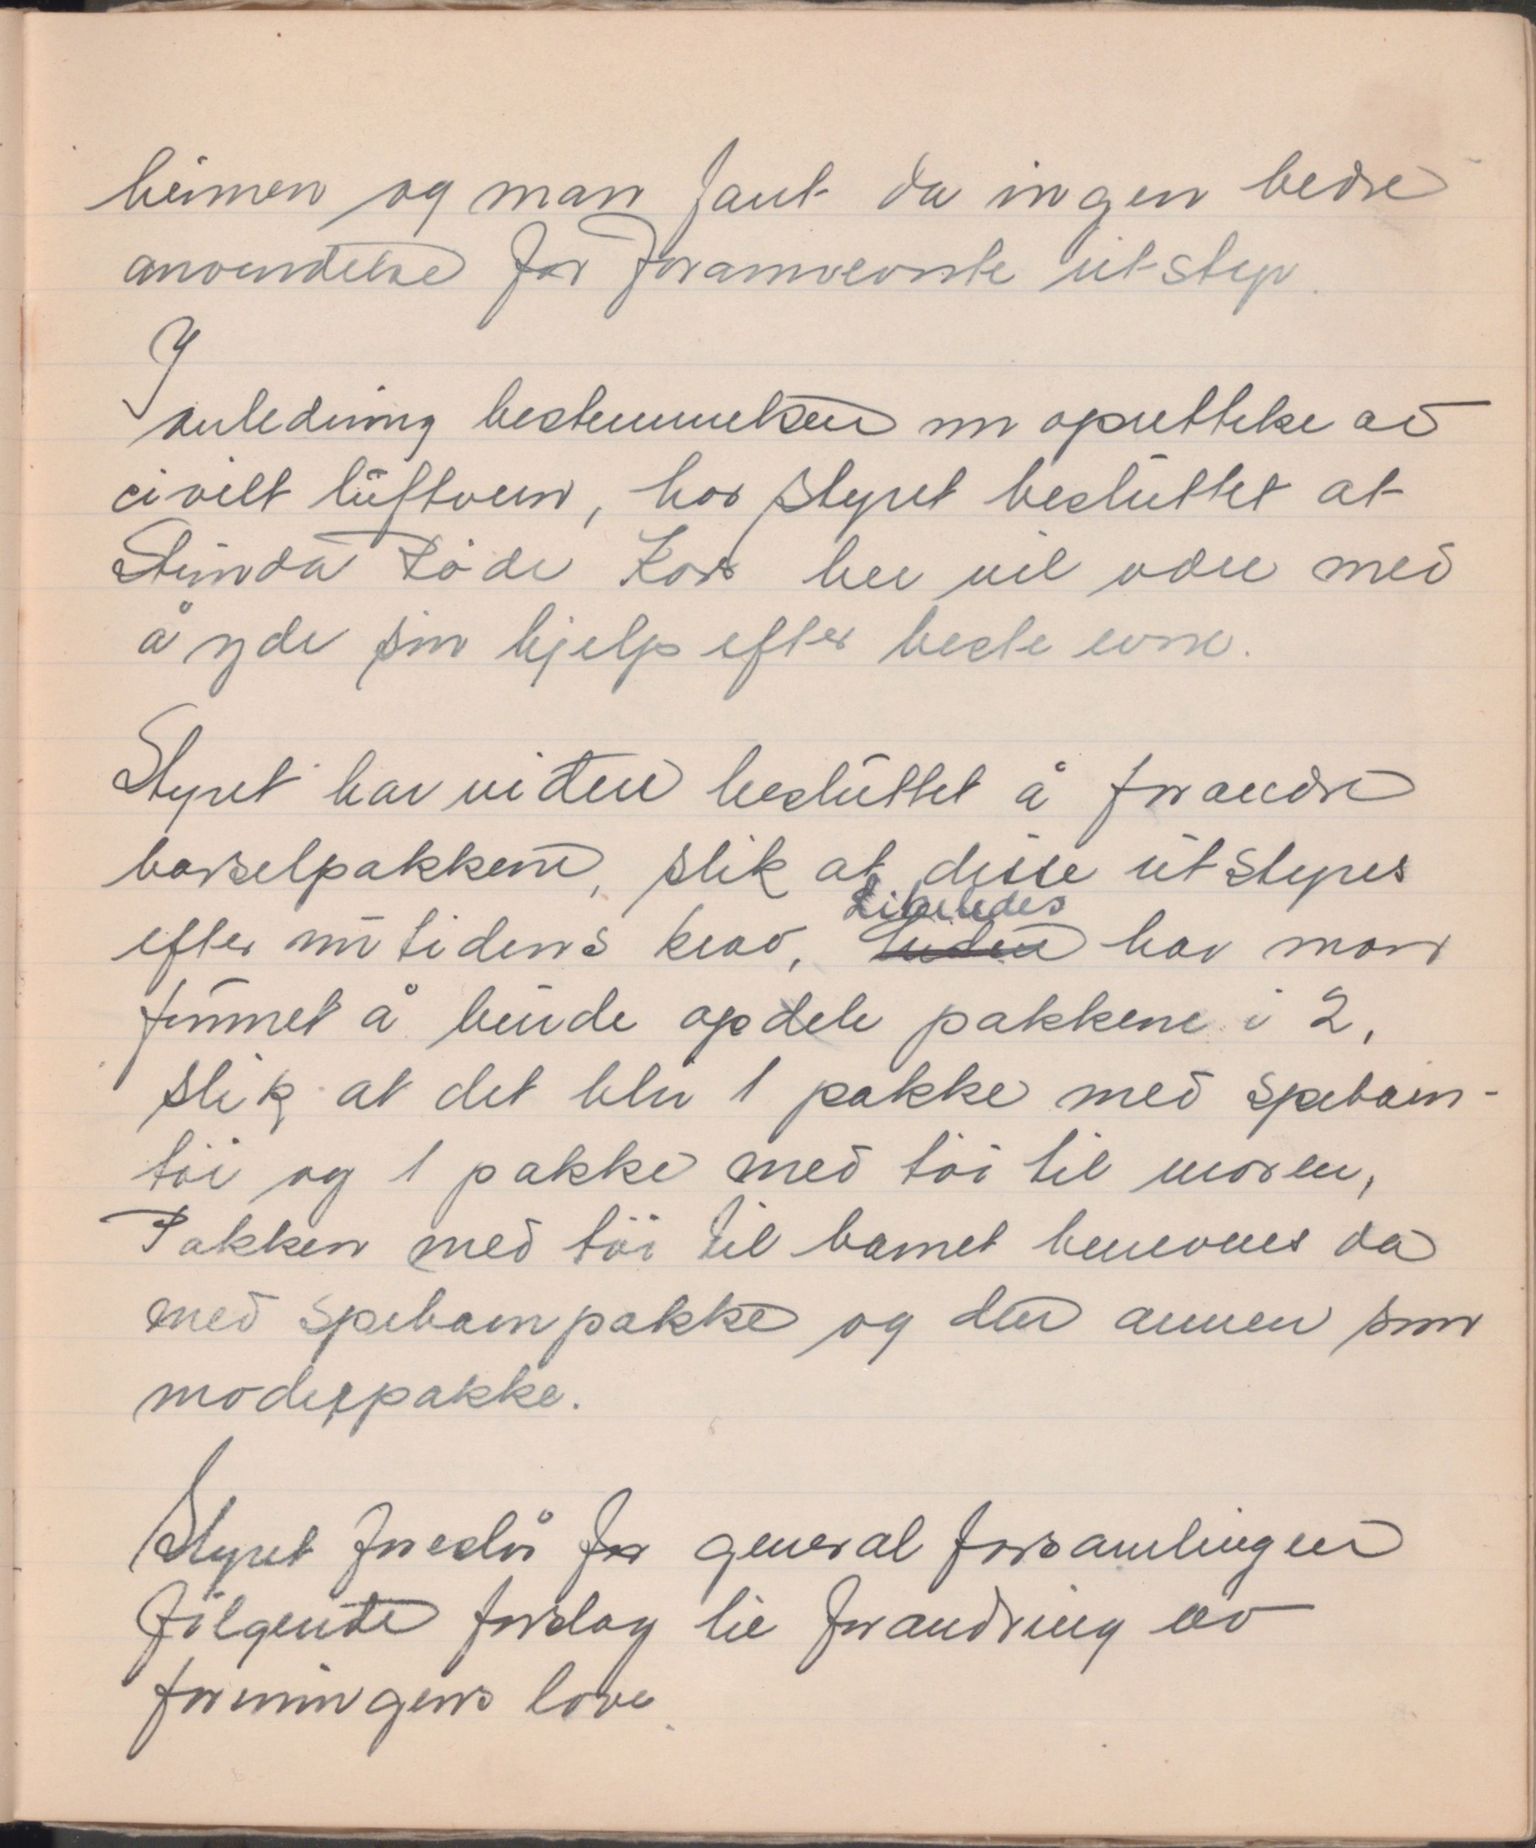 heimen og man fant da ingen bedre
anvendelse for forannevnte utstyr.
I
anledning bestemmelsen om oprettelse av
civilt luftvern, har styret besluttet at
Strinda Røde Kors her vil være med
å yde sin hjelp efter beste evne.
Styret har videre besluttet å forandre
barselpakkene, slik at disse utstyres
efter nutidens krav, Likeledes har man
funnet å burde opdele pakkene i 2,
slik at det blir 1 pakke med spebarn-
tøi og 1 pakke med tøi til moren,
Pakken med tøi til barnet benevnes da
med spebarnpakke og den annen som
moderpakke.
Styret foreslår for generalforsamlingen
følgende forslag til forandring av
foreningens love.